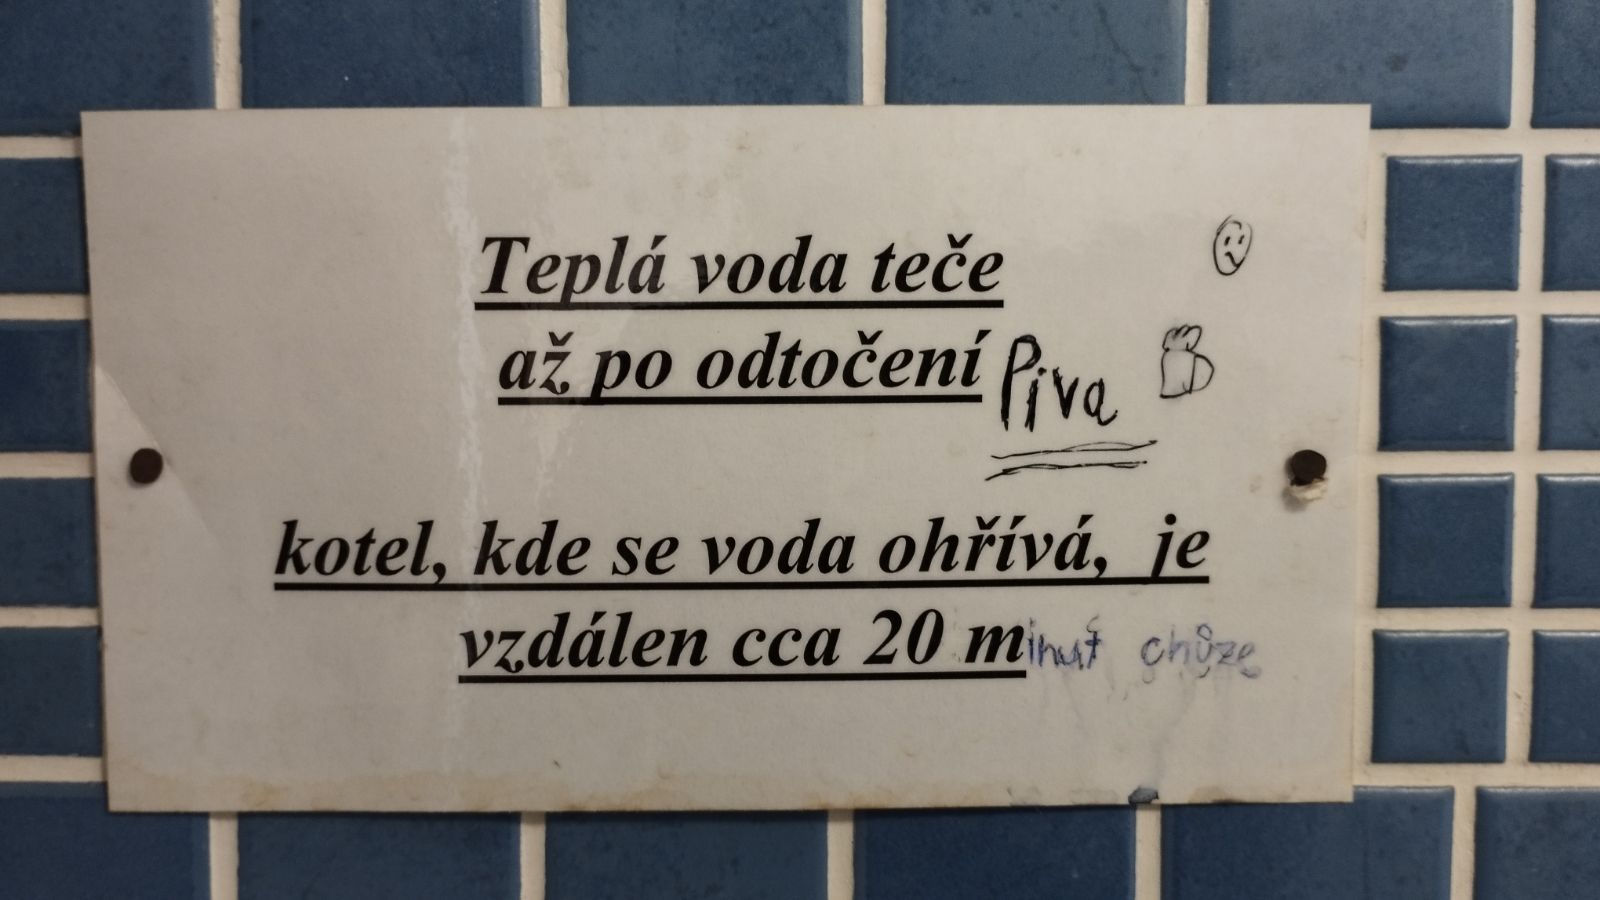 Teplá voda teče
až po odtočení Piva
kotel, kde se voda ohřívá, je
vzdálen cca 20 minut chůze